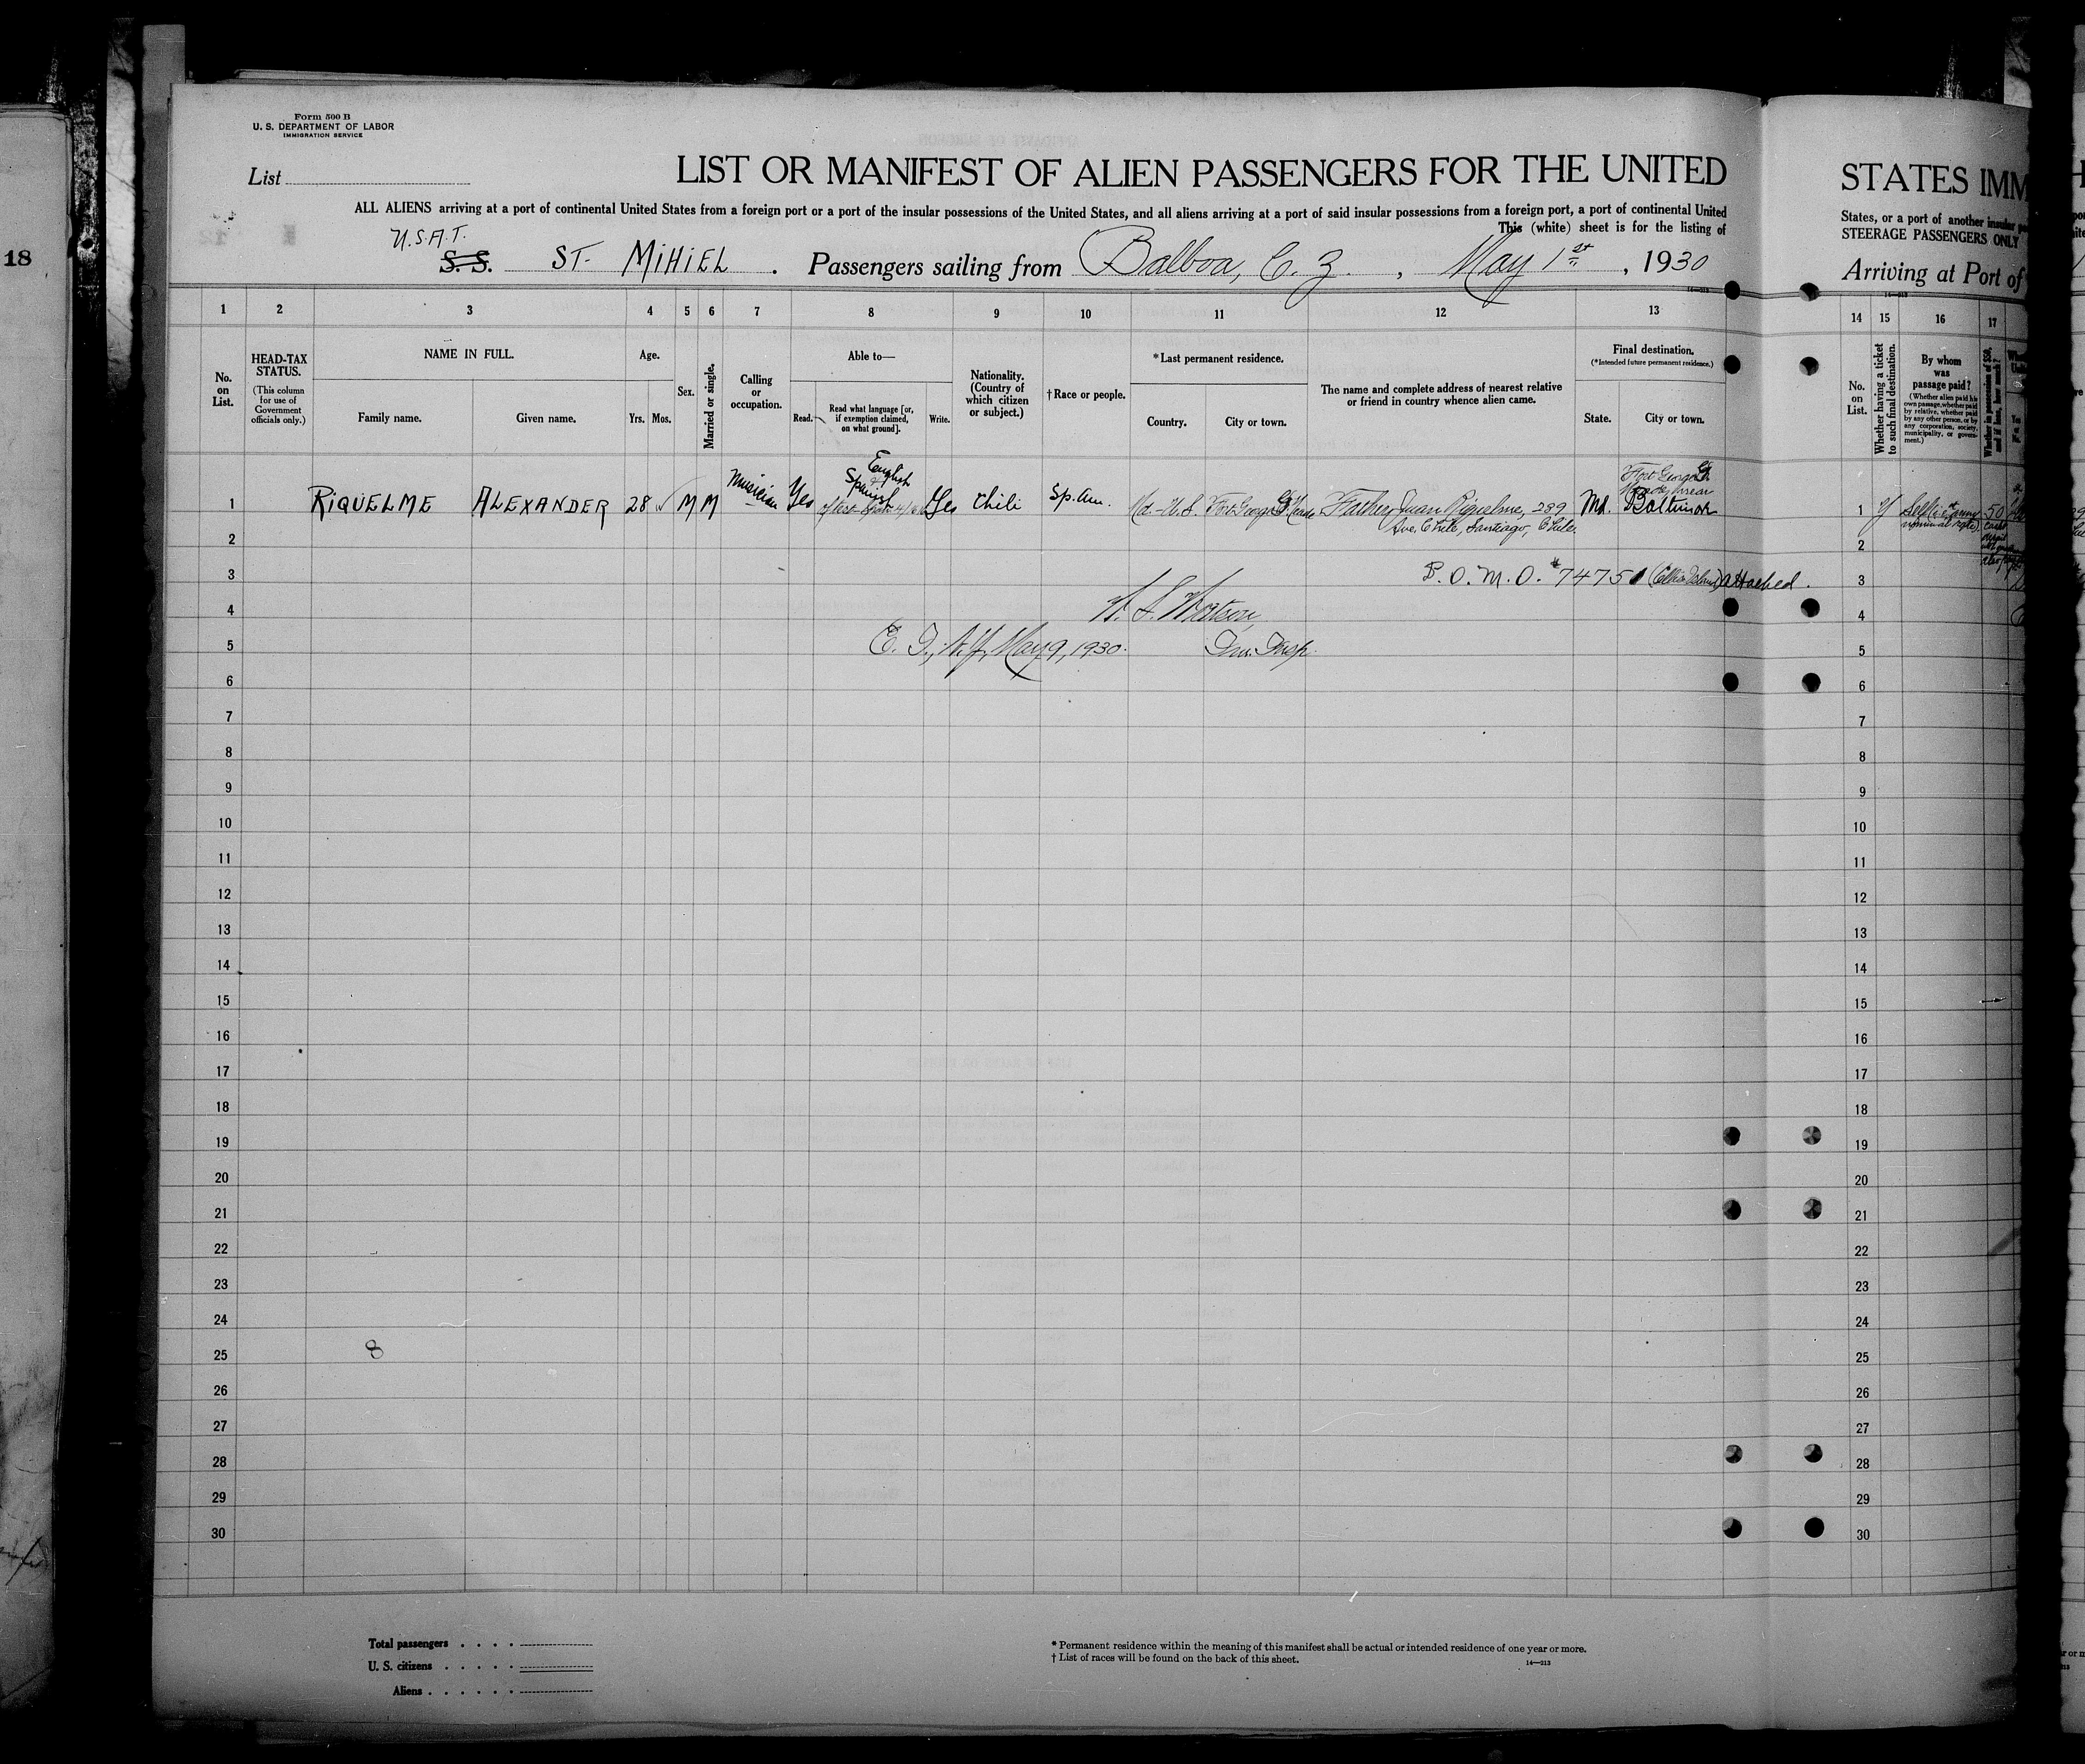 18
Form 500 B
U. S. DEPARTMENT OF LABOR
IMMIGRATION SERVICE
List
LIST OR MANIFEST OF ALIEN PASSENGERS FOR THE UNITED
ALL ALIENS arriving at a port of continental United States from a foreign port or a port of the insular possessions of the United States, and all aliens arriving at a port of said insular possessions from a foreign port, a port of continental United
This (white) sheet is for the listing of
U.S.A.T.
S. S. ST. MIHIEL. Passengers sailing from Balboa, C. Z., May 1st, 1930
1 2 3 4 5 6 7 8 9 10 11 12 13
No. on List.
HEAD-TAX STATUS.
(This column for use of Government officials only.)
NAME IN FULL.
Family name. Given name.
Age.
Yrs. Mos.
Sex.
Married or single.
Calling or occupation.
Able to—
Read. Read what language [or, if exemption claimed, on what ground]. Write.
Nationality. (Country of which citizen or subject.)
†Race or people.
*Last permanent residence.
Country. City or town.
The name and complete address of nearest relative or friend in country whence alien came.
Final destination.
(*Intended future permanent residence.)
State. City or town.
1 RIQUELME ALEXANDER 28 M M Musician Yes English & Spanish Yes Chili Sp. Am. Md.-U.S. Fort George G Meade Father, Juan Riquelme, 289 Ave. Chile, Santiago, Chile. Md. Fort George G. Meade, near Baltimor
2
3 B. O. M. O. # 74751 (Ellis Island) attached.
4
5
E. I., N.Y., May 9, 1930. Im. Insp.
6
7
8
9
10
11
12
13
14
15
16
17
18
19
20
21
22
23
24
25 8
26
27
28
29
30
Total passengers
U. S. citizens
Aliens
* Permanent residence within the meaning of this manifest shall be actual or intended residence of one year or more.
† List of races will be found on the back of this sheet.
14—213
STATES IMM
States, or a port of another insular
STEERAGE PASSENGERS ONLY
Arriving at Port of
14 15 16 17
No. on List.
Whether having a ticket to such final destination.
By whom was passage paid?
(Whether alien paid his own passage, whether paid by relative, whether paid by any other person, or by any corporation, society, municipality, or government.)
Whether in possession of $50, and if less, how much?
1 Self nominal rate) 50
2
3
4
5
6
7
8
9
10
11
12
13
14
15
16
17
18
19
20
21
22
23
24
25
26
27
28
29
30